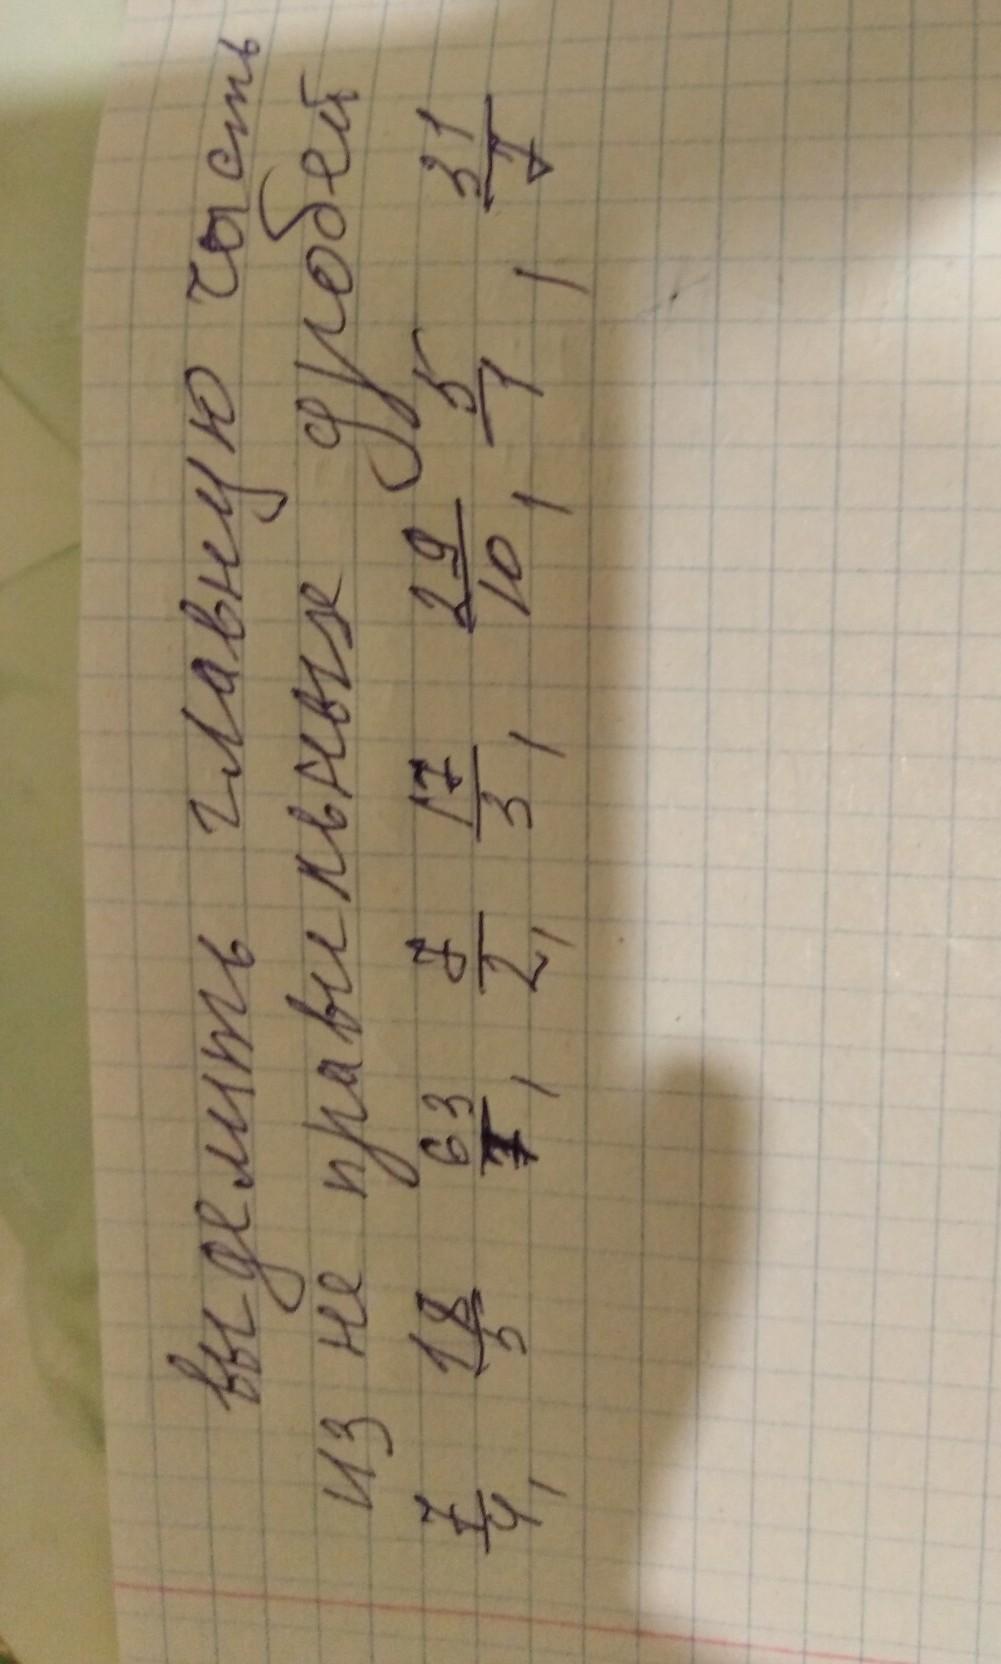 выделить главную часть
из не правильных дробей
7/4, 18/5 63/7, 7/2, 17/3, 29/10, 5/1, 31/7